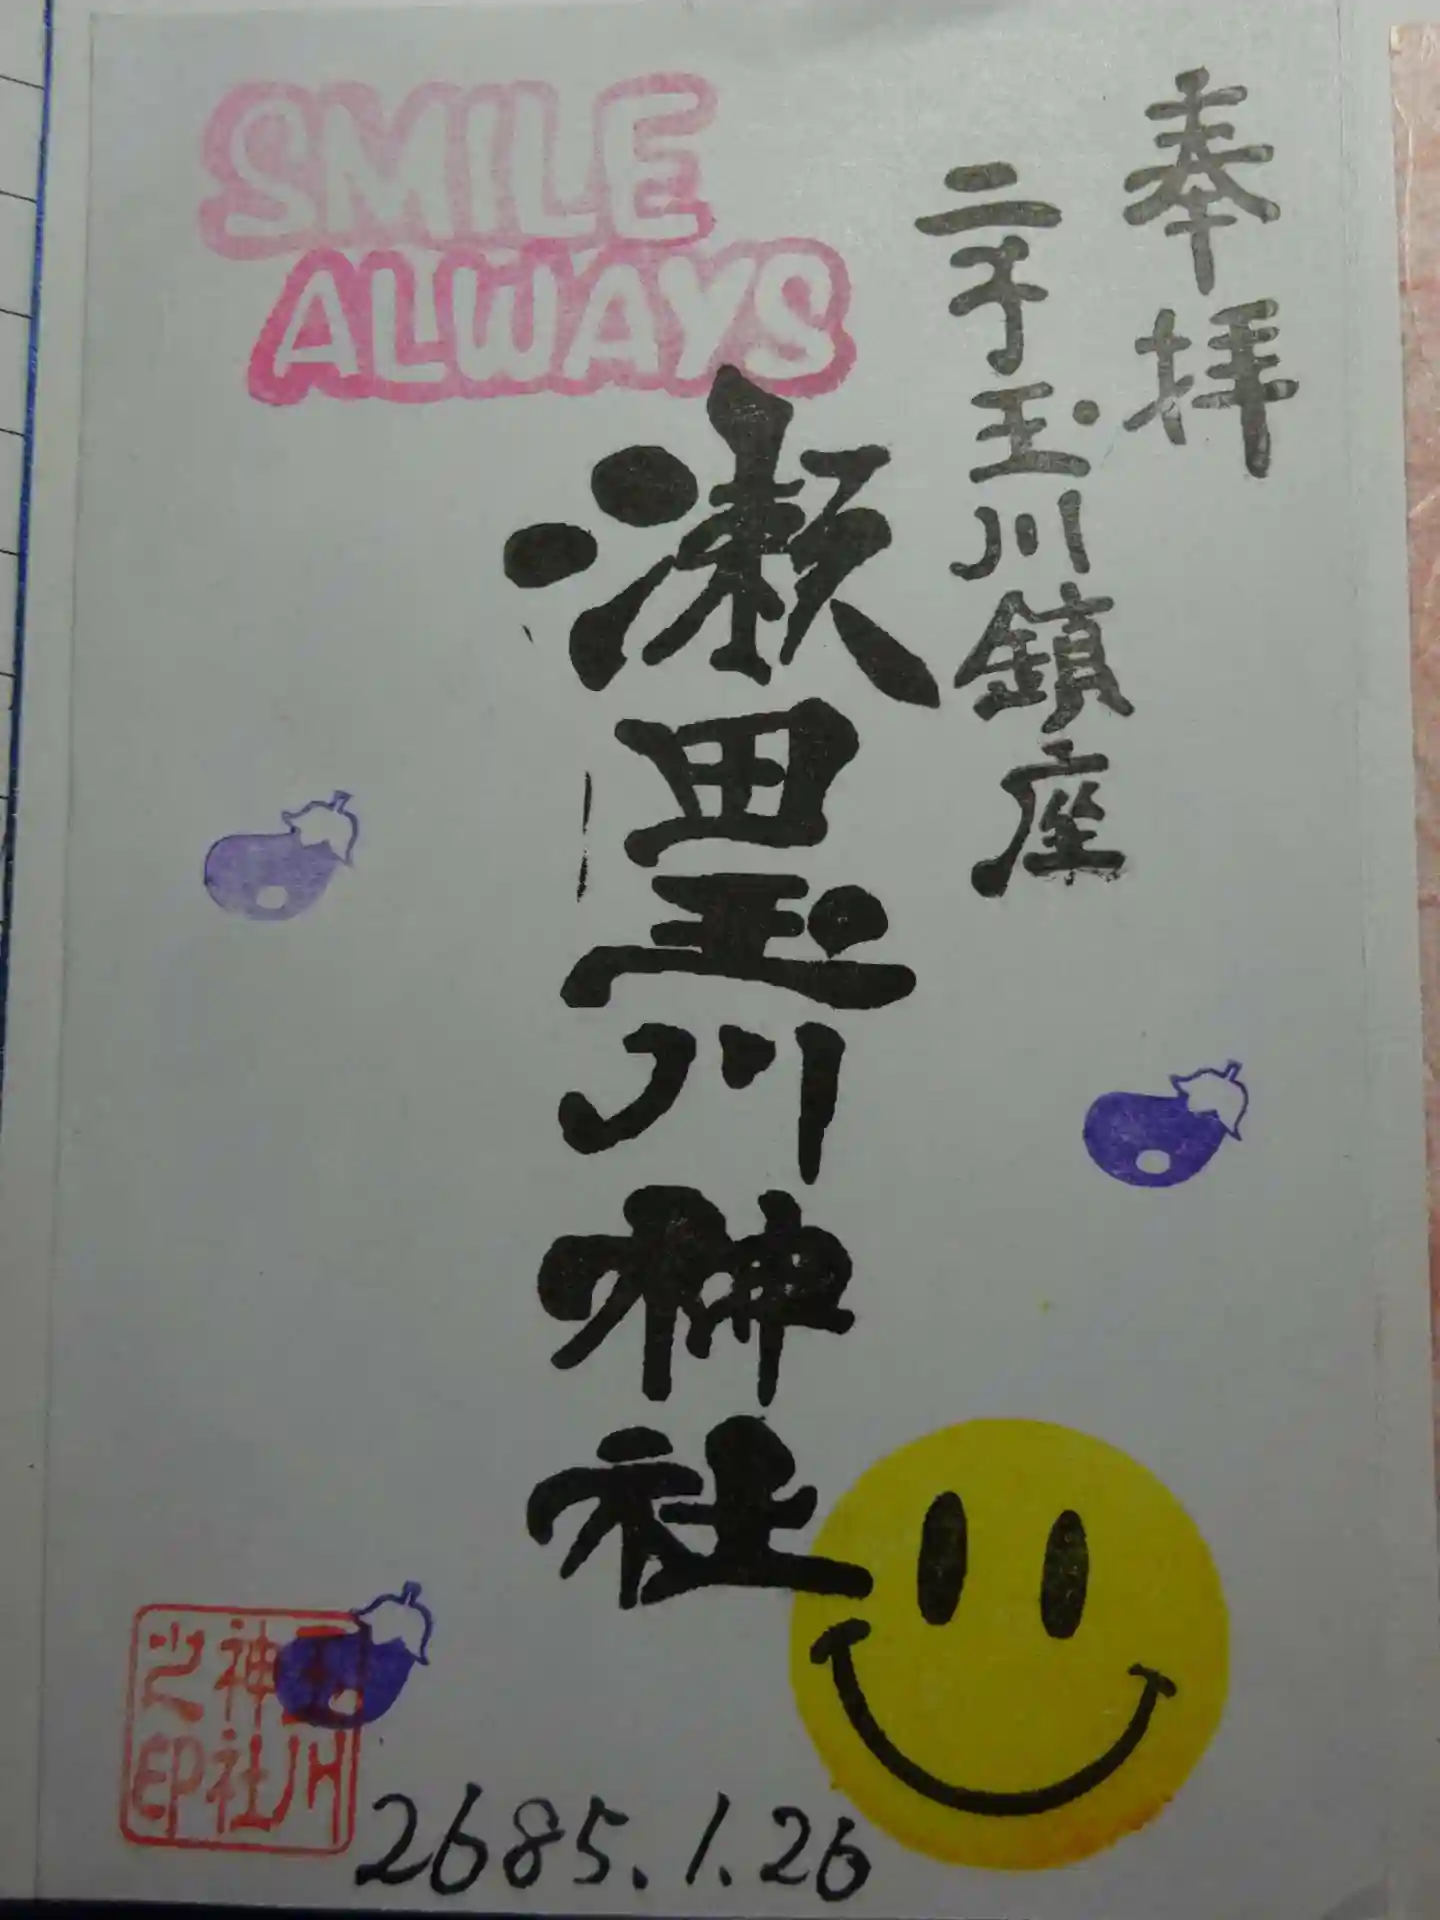 SMILE
ALWAYS
奉拝
二子玉川鎮座
瀬田玉川神社
玉川
神社
之印
2685.1.26